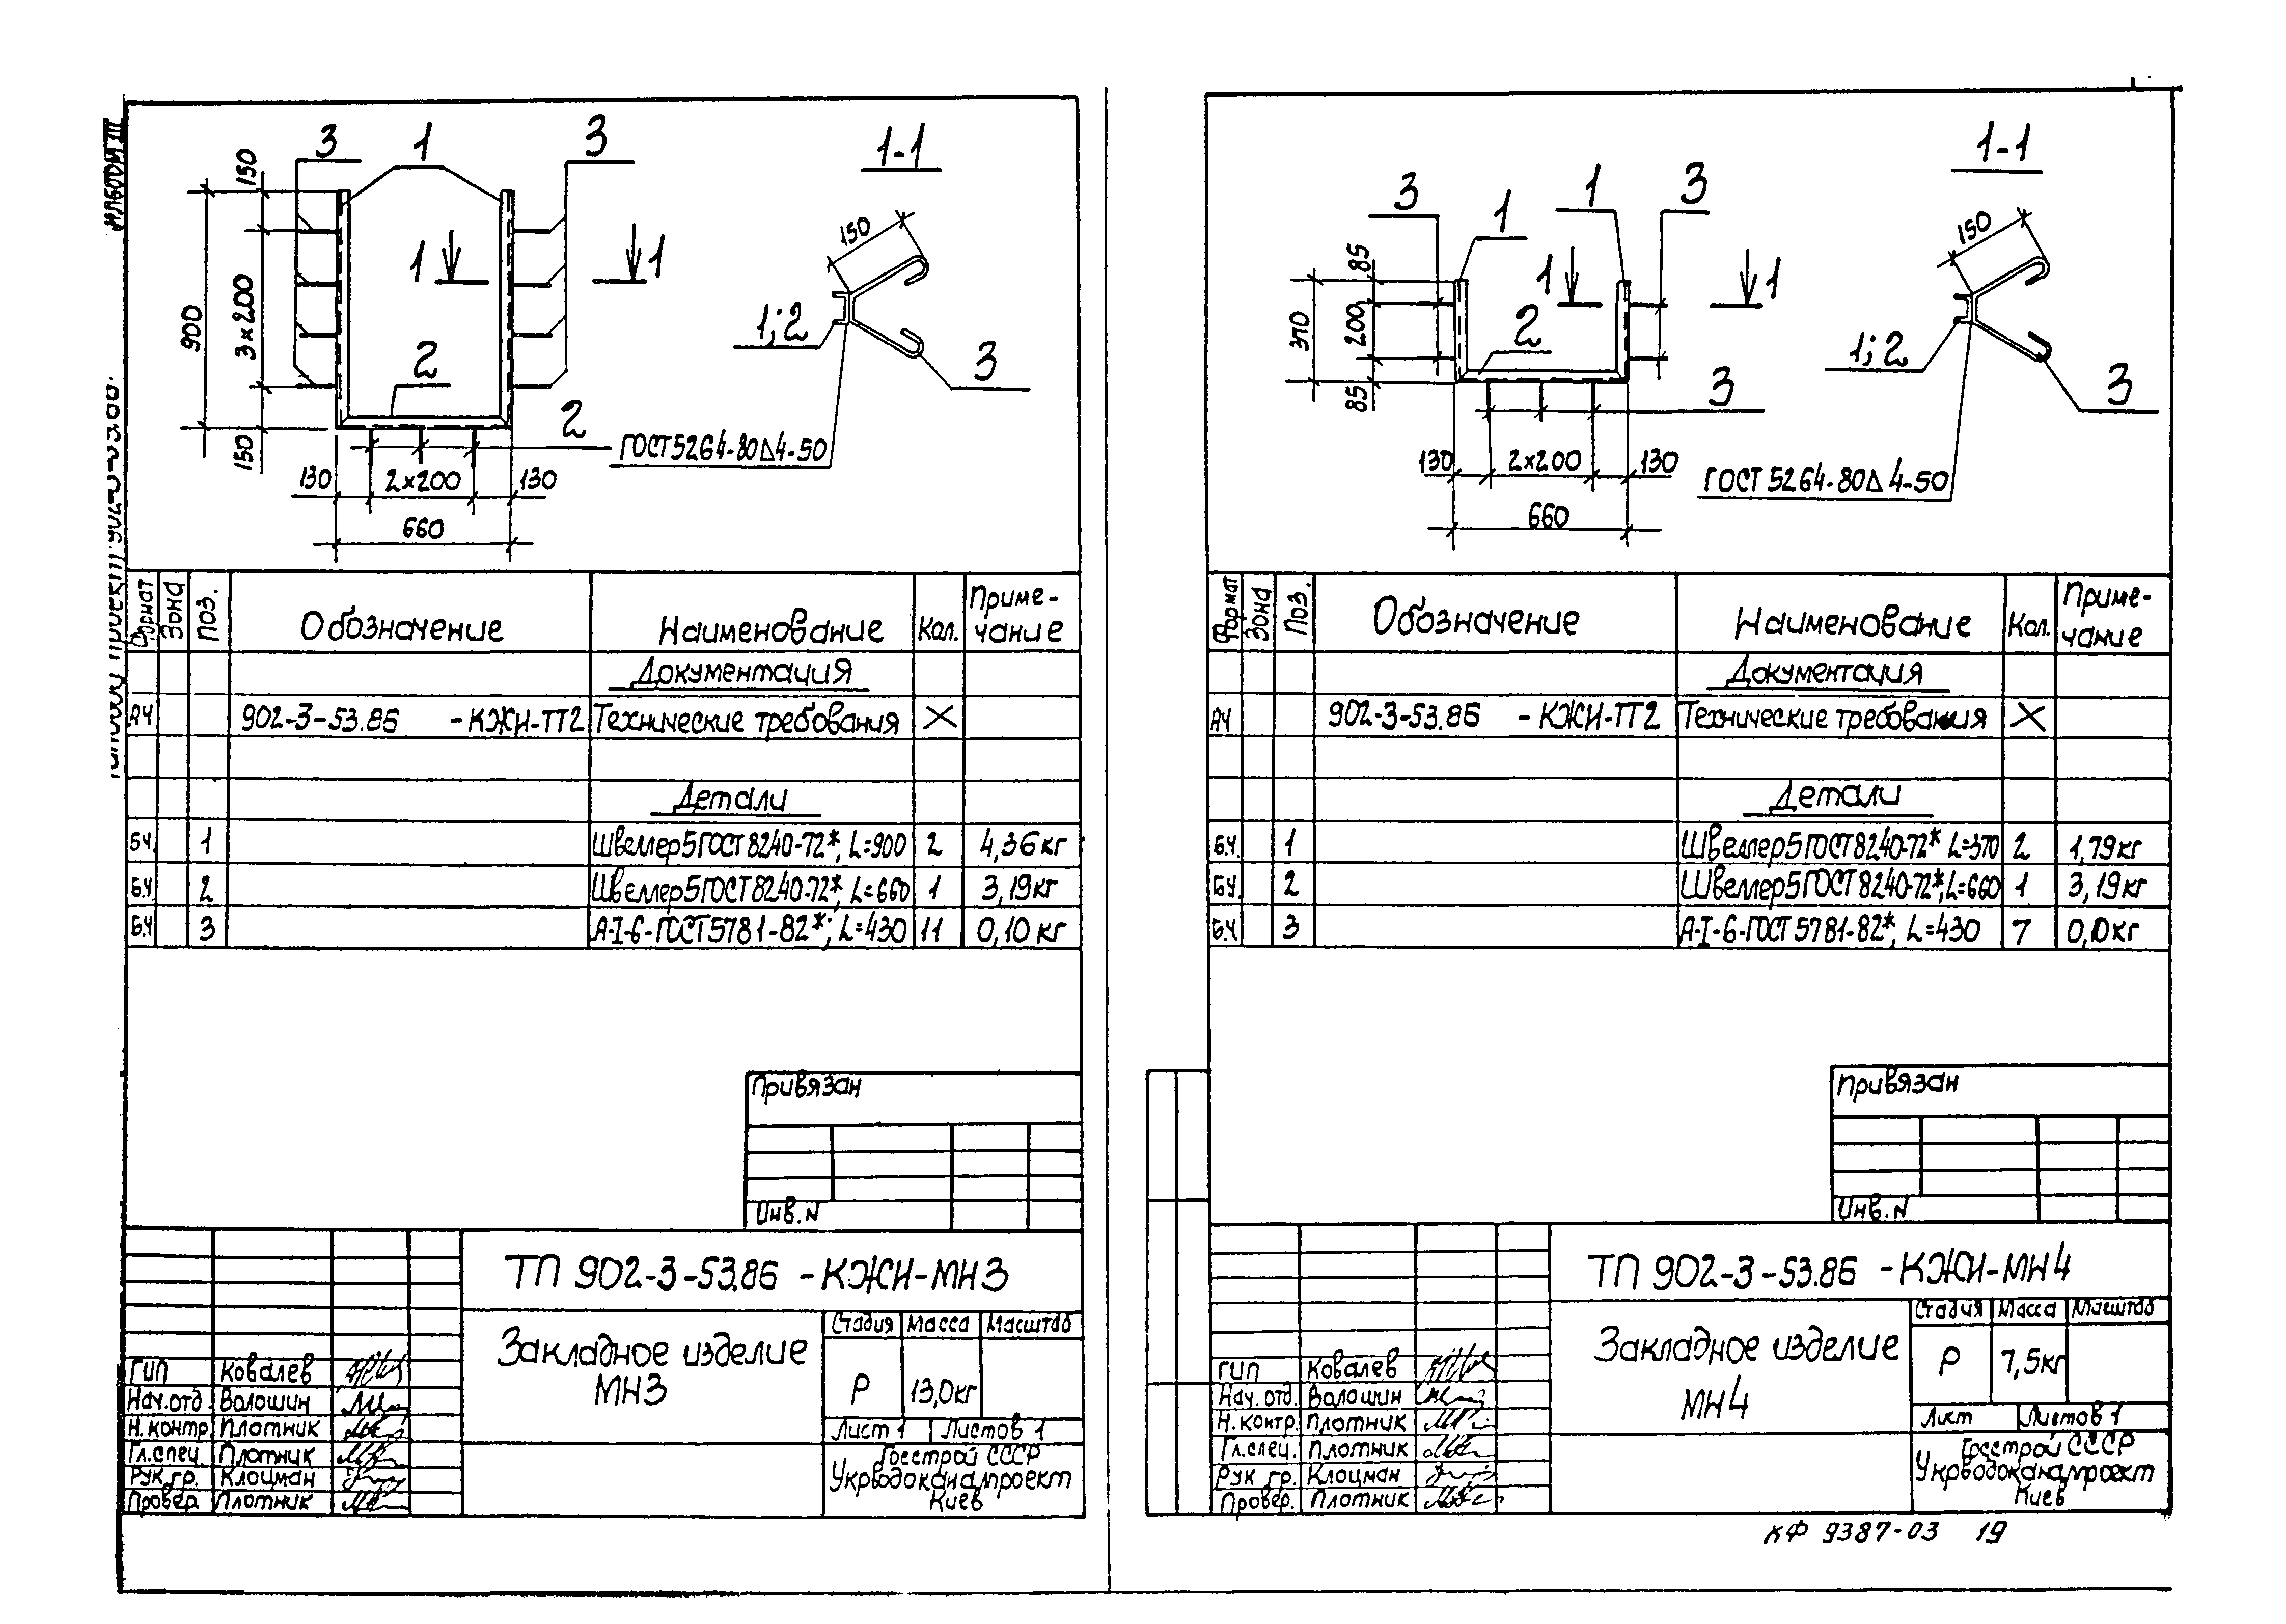 Альбом III
Типовой проект 902-3-53.86.
3
1
3
1-1
150
900
3×200
150
1
1
2
2
130
2×200
130
660
150
1;2
3
ГОСТ 5264-80 Δ 4-50
Формат
Зона
Поз.
Обозначение
Наименование
Кол.
Приме-
чание
Документация
А4 902-3-53.86 -КЖИ-ТТ2 Технические требования X
Детали
Б4. 1 Швеллер 5 ГОСТ 8240-72*, L=900 2 4,36 кг
Б.Ч 2 Швеллер 5 ГОСТ 8240-72*, L=660 1 3,19 кг
Б.Ч 3 А-I-6-ГОСТ 5781-82*; L=430 11 0,10 кг
Привязан
Инв. N
ТП 902-3-53.86 -КЖИ-МН3
Закладное изделие
МН3
Стадия Масса Масштаб
Р 13,0кг
Лист 1 Листов 1
Госстрой СССР
Укрводоканалпроект
Киев
ГИП Ковалев
Нач.отд. Волошин
Н. контр. Плотник
Гл.спец. Плотник
Рук.гр. Клоцман
Провер. Плотник
3
1
1
3
1-1
85
370
200
85
1
1
2
3
130
2×200
130
660
150
1;2
3
ГОСТ 5264-80 Δ 4-50
Формат
Зона
Поз.
Обозначение
Наименование
Кол.
Приме-
чание
Документация
А4 902-3-53.86 -КЖИ-ТТ2 Технические требования X
Детали
Б.Ч. 1 Швеллер 5 ГОСТ 8240-72* L=370 2 1,79 кг
Б.Ч. 2 Швеллер 5 ГОСТ 8240-72*, L=660 1 3,19 кг
Б.Ч 3 А-I-6-ГОСТ 5781-82*, L=430 7 0,10 кг
Привязан
Инв. N
ТП 902-3-53.86 -КЖИ-МН4
Закладное изделие
МН4
Стадия Масса Масштаб
Р 7,5кг
Лист Листов 1
Госстрой СССР
Укрводоканалпроект
Киев
ГИП Ковалев
Нач. отд. Волошин
Н. контр. Плотник
Гл.спец. Плотник
Рук гр. Клоцман
Провер. Плотник
КФ 9387-03 19